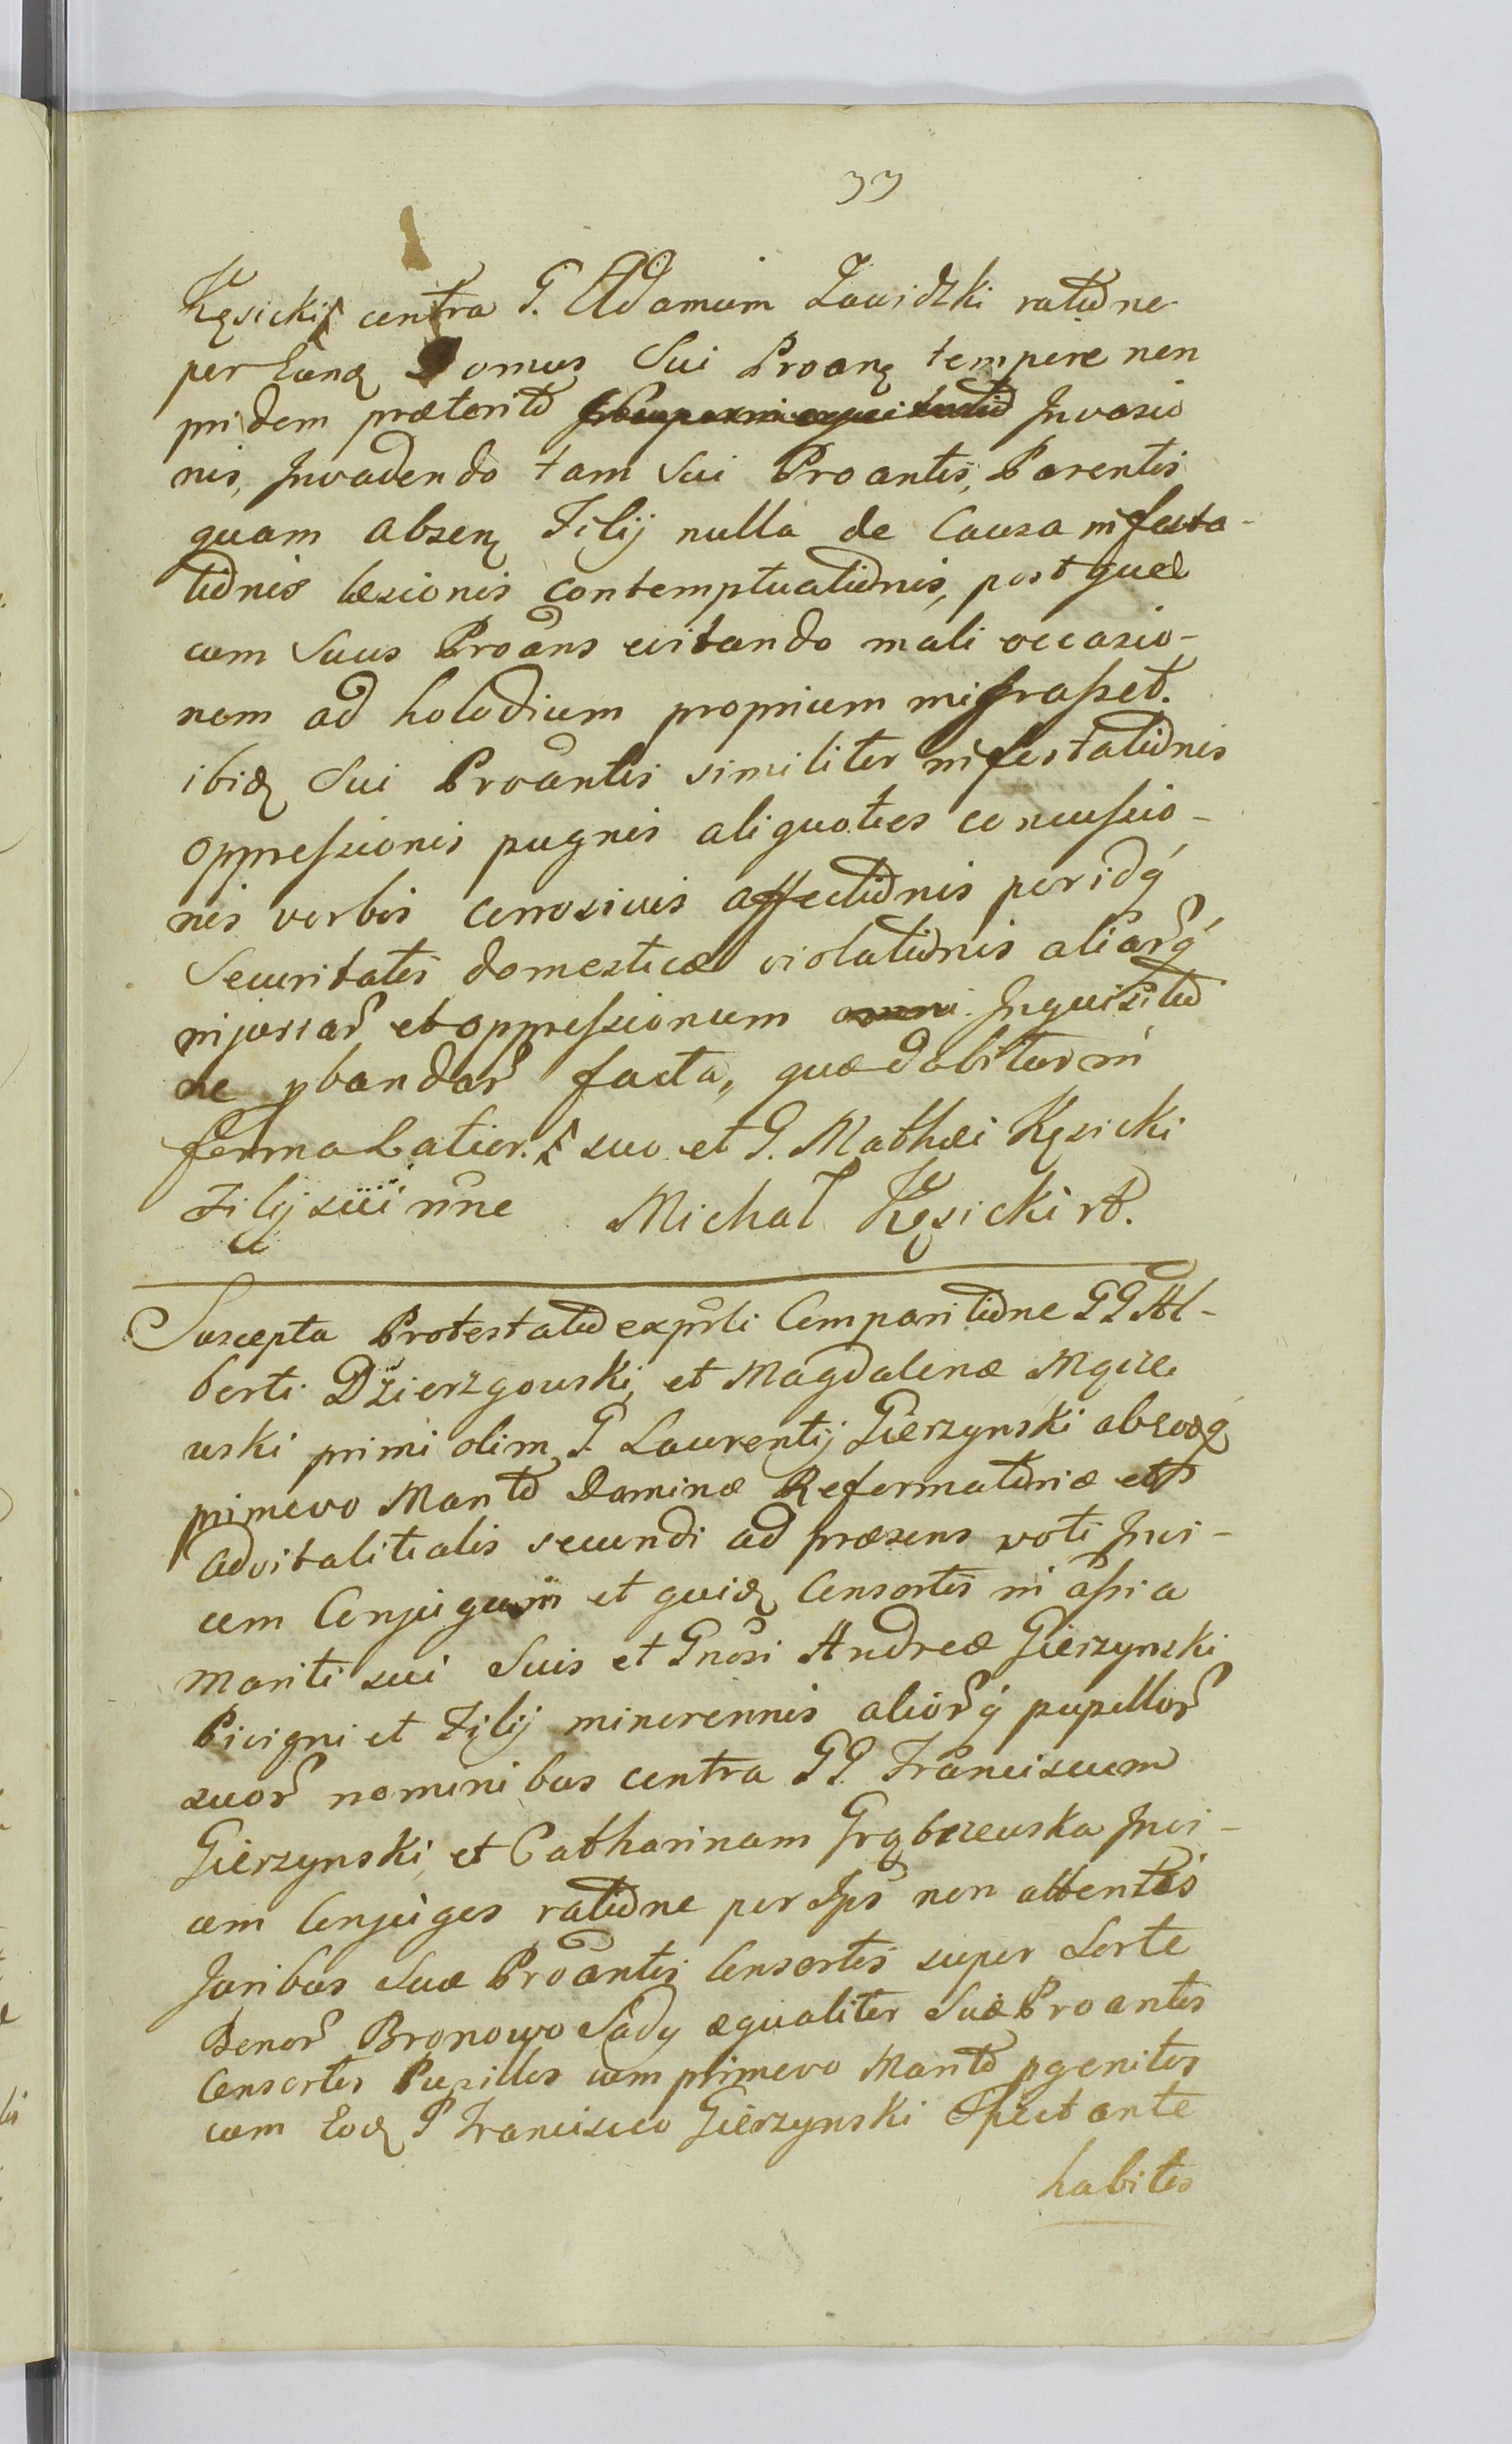 33
Kęsicki contra G. Adamum Zawidzki ratiõne
per Eund Domus Sui Proang tempore non
pridem præterito Invasio
nis, Invadendo tam Sui Proantis, Parentis
quam absen Filij nulla de Causa infesta-
tiõnis læsionis contemptuatiõnis, post quæ
cum Suus Proãns evitando mali occasio-
nem ad holodium proprium migrasset.
ibid Sui Proãntis similiter infestatiõnis
oppressionis pugnis aliquoties concussio-
nis verbis corrosivis affectiõnis per idq́
Securitatis domesticæ violatiõnis aliarq́
injuriar et oppressionum Inquisitio
ne pbandar facta, quæ dabitur in
forma Latior. suo et G. Mathæi Kęsicki
Filij sui nñe Michał Kęsicki
Suscepta Protestatio exprsti Comparitiõne GG Al-
berti Dzierzgowski, et Magdalenæ Mącze
wski primi olim G. Laurentij Gierzynski absq
primevo Marito Dominæ Reformatoriæ et
advitalitialis secundi ad præsens voti Invi-
cem Conjugum et quid Consortis in assia
mariti sui Suis et Gnosi Andreæ Gierzynski
Privigni et Filij minorennis aliorq́ pupillor
suor nominibus contra GG. Franciscum
Gierzynski, et Catharinam Grąbczewska Invi-
cem Conjuges ratiõne per Ips non attentis
Juribus Suæ Proãntis Consortis super Sorte
Bonor Bronowo Sady æqualiter Suæ Proantis
Consortis Pupillos cum primevo Marito pgenitos
cum Eod G Francisco Gierzynski Spectante
habitis